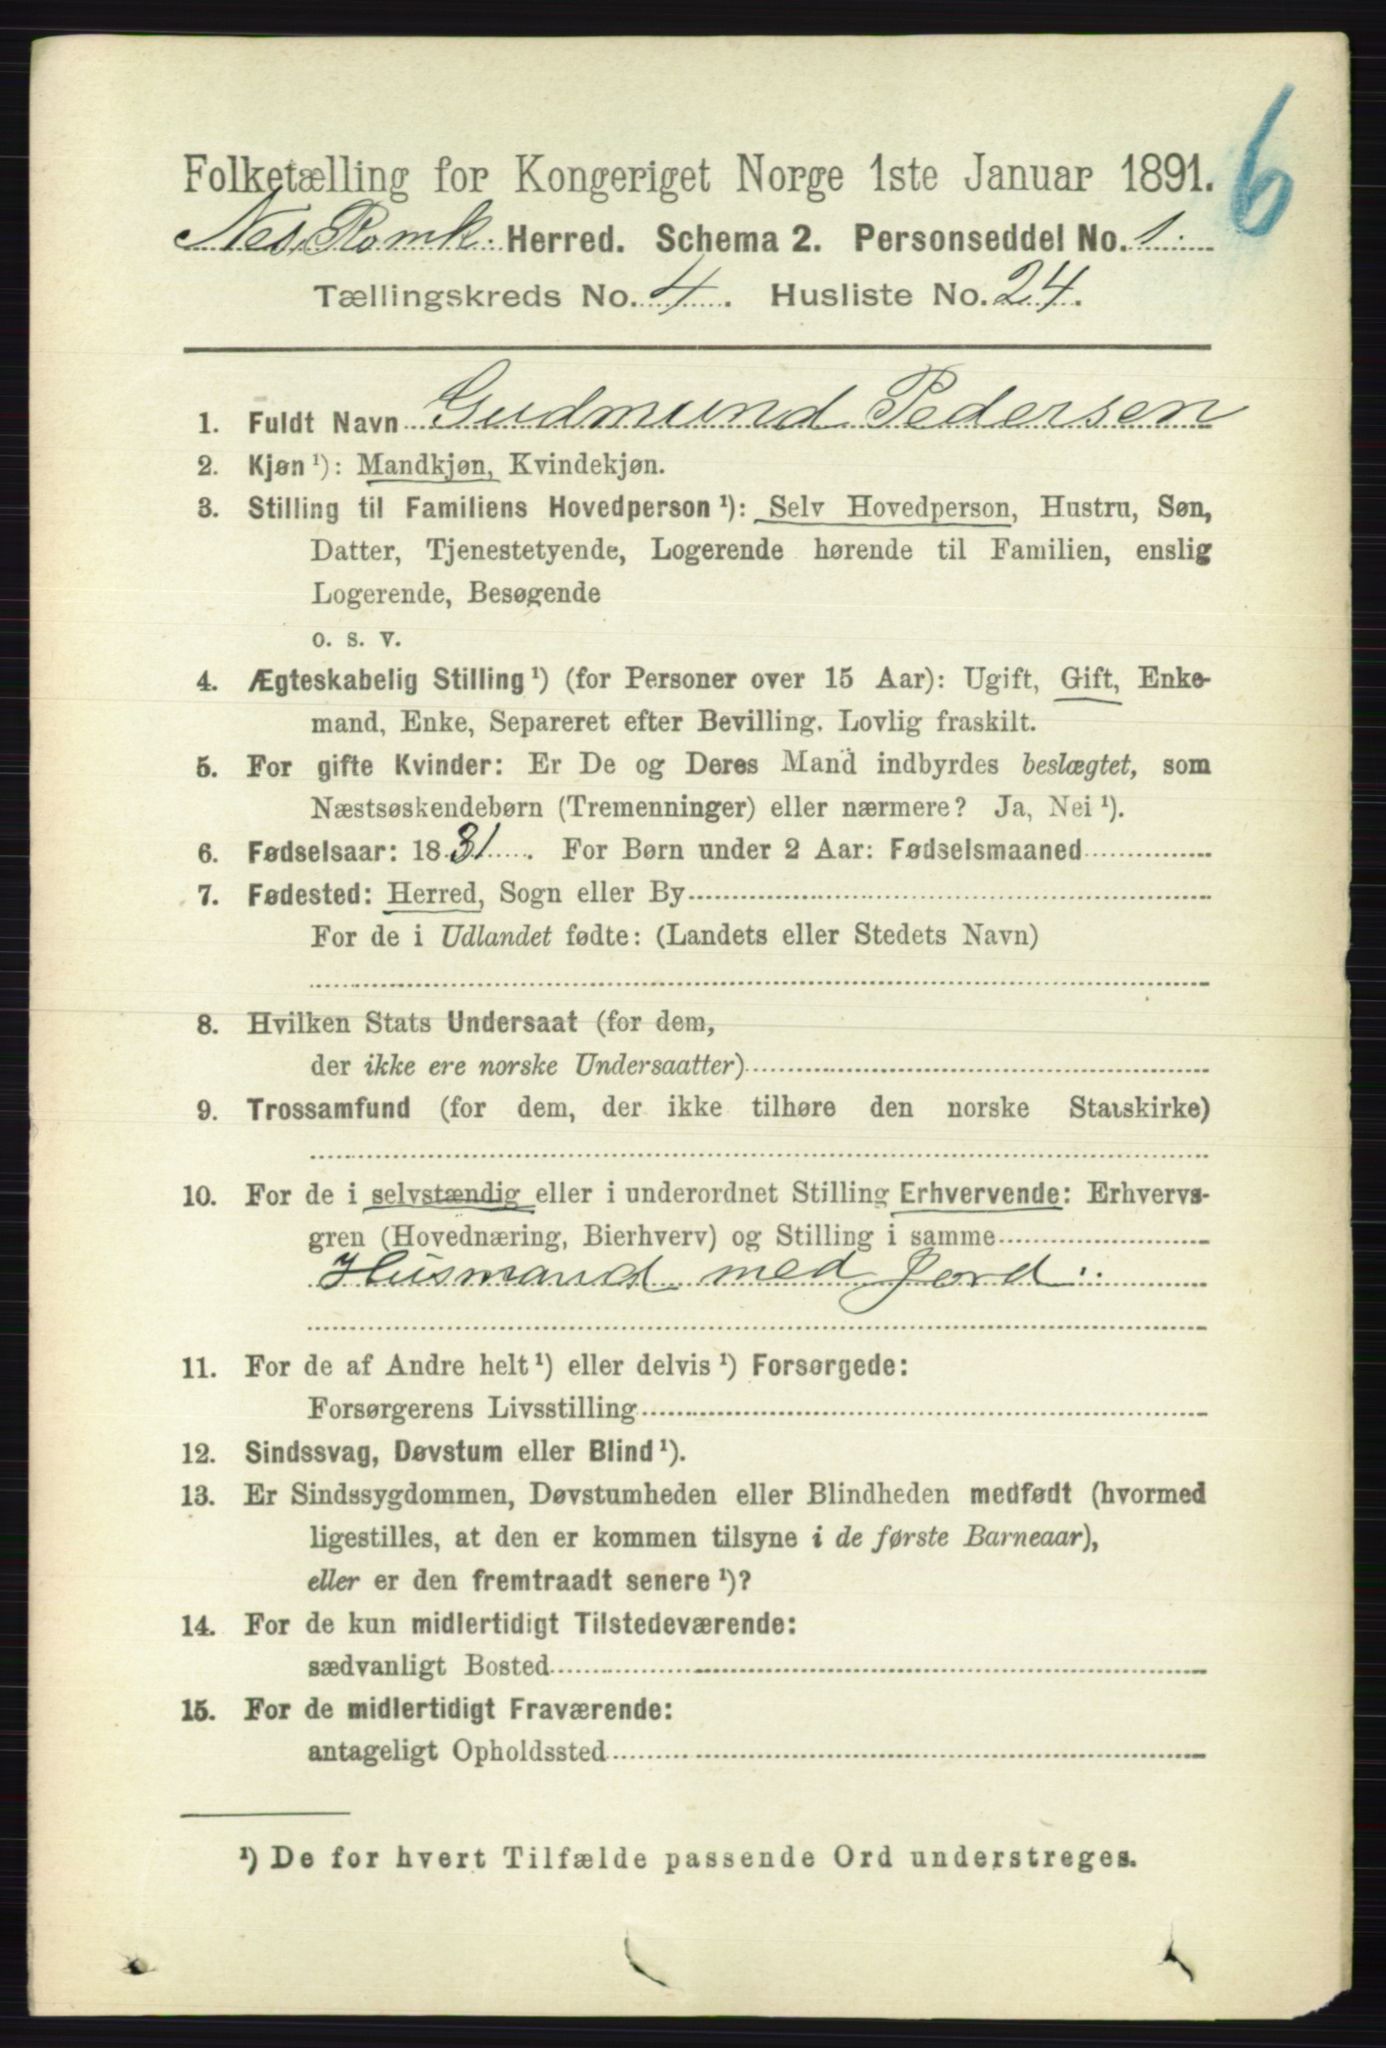 6
Folketælling for Kongeriget Norge 1ste Januar 1891.
Nes. Romk. Herred. Schema 2. Personseddel No. 1.
Tællingskreds No. 4. Husliste No. 24.
1. Fuldt Navn Gudmund Pedersen
2. Kjøn ¹): Mandkjøn, Kvindekjøn.
3. Stilling til Familiens Hovedperson ¹): Selv Hovedperson, Hustru, Søn,
Datter, Tjenestetyende, Logerende hørende til Familien, enslig
Logerende, Besøgende
o. s. v.
4. Ægteskabelig Stilling ¹) (for Personer over 15 Aar): Ugift, Gift, Enke-
mand, Enke, Separeret efter Bevilling. Lovlig fraskilt.
5. For gifte Kvinder: Er De og Deres Mand indbyrdes beslægtet, som
Næstsøskendebørn (Tremenninger) eller nærmere? Ja, Nei ¹).
6. Fødselsaar: 1831. For Børn under 2 Aar: Fødselsmaaned
7. Fødested: Herred, Sogn eller By
For de i Udlandet fødte: (Landets eller Stedets Navn)
8. Hvilken Stats Undersaat (for dem,
der ikke ere norske Undersaatter)
9. Trossamfund (for dem, der ikke tilhøre den norske Statskirke)
10. For de i selvstændig eller i underordnet Stilling Erhvervende: Erhvervs-
gren (Hovednæring, Bierhverv) og Stilling i samme
Husmand med Jord
11. For de af Andre helt ¹) eller delvis ¹) Forsørgede:
Forsørgerens Livsstilling
12. Sindssvag, Døvstum eller Blind ¹).
13. Er Sindssygdommen, Døvstumheden eller Blindheden medfødt (hvormed
ligestilles, at den er kommen tilsyne i de første Barneaar),
eller er den fremtraadt senere ¹)?
14. For de kun midlertidigt Tilstedeværende:
sædvanligt Bosted
15. For de midlertidigt Fraværende:
antageligt Opholdssted
¹) De for hvert Tilfælde passende Ord understreges.